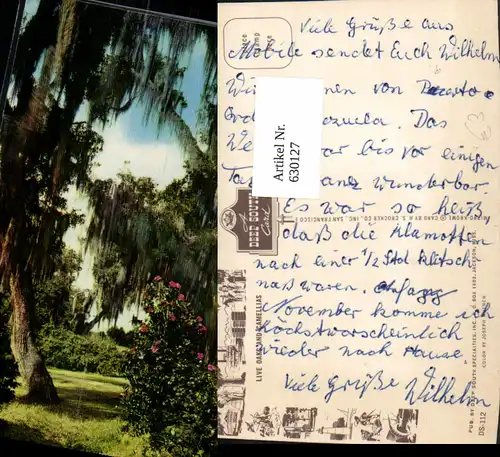 Viele Grüße aus
Mobile sendet Euch Wilhelm
von Puerto
Das
We bis vor einigen
Ta ganz wunderbar.
Es war so heiß
daß die Klamotten
nach einer 1/2 Std klitsch
naß waren. Anfang
November komme ich
höchstwarscheinlich
wieder nach Hause
Viele Grüße Wilhelm
Artikel Nr.
630127
A
DEEP SOUTH
Card
LIVE OAKS AND CAMELLIAS
CARD BY H. S. CROCKER CO., INC., SAN FRANCISCO
PUB. BY DEEP SOUTH SPECIALTIES, INC.
COLOR BY JOSEPH
DS-112